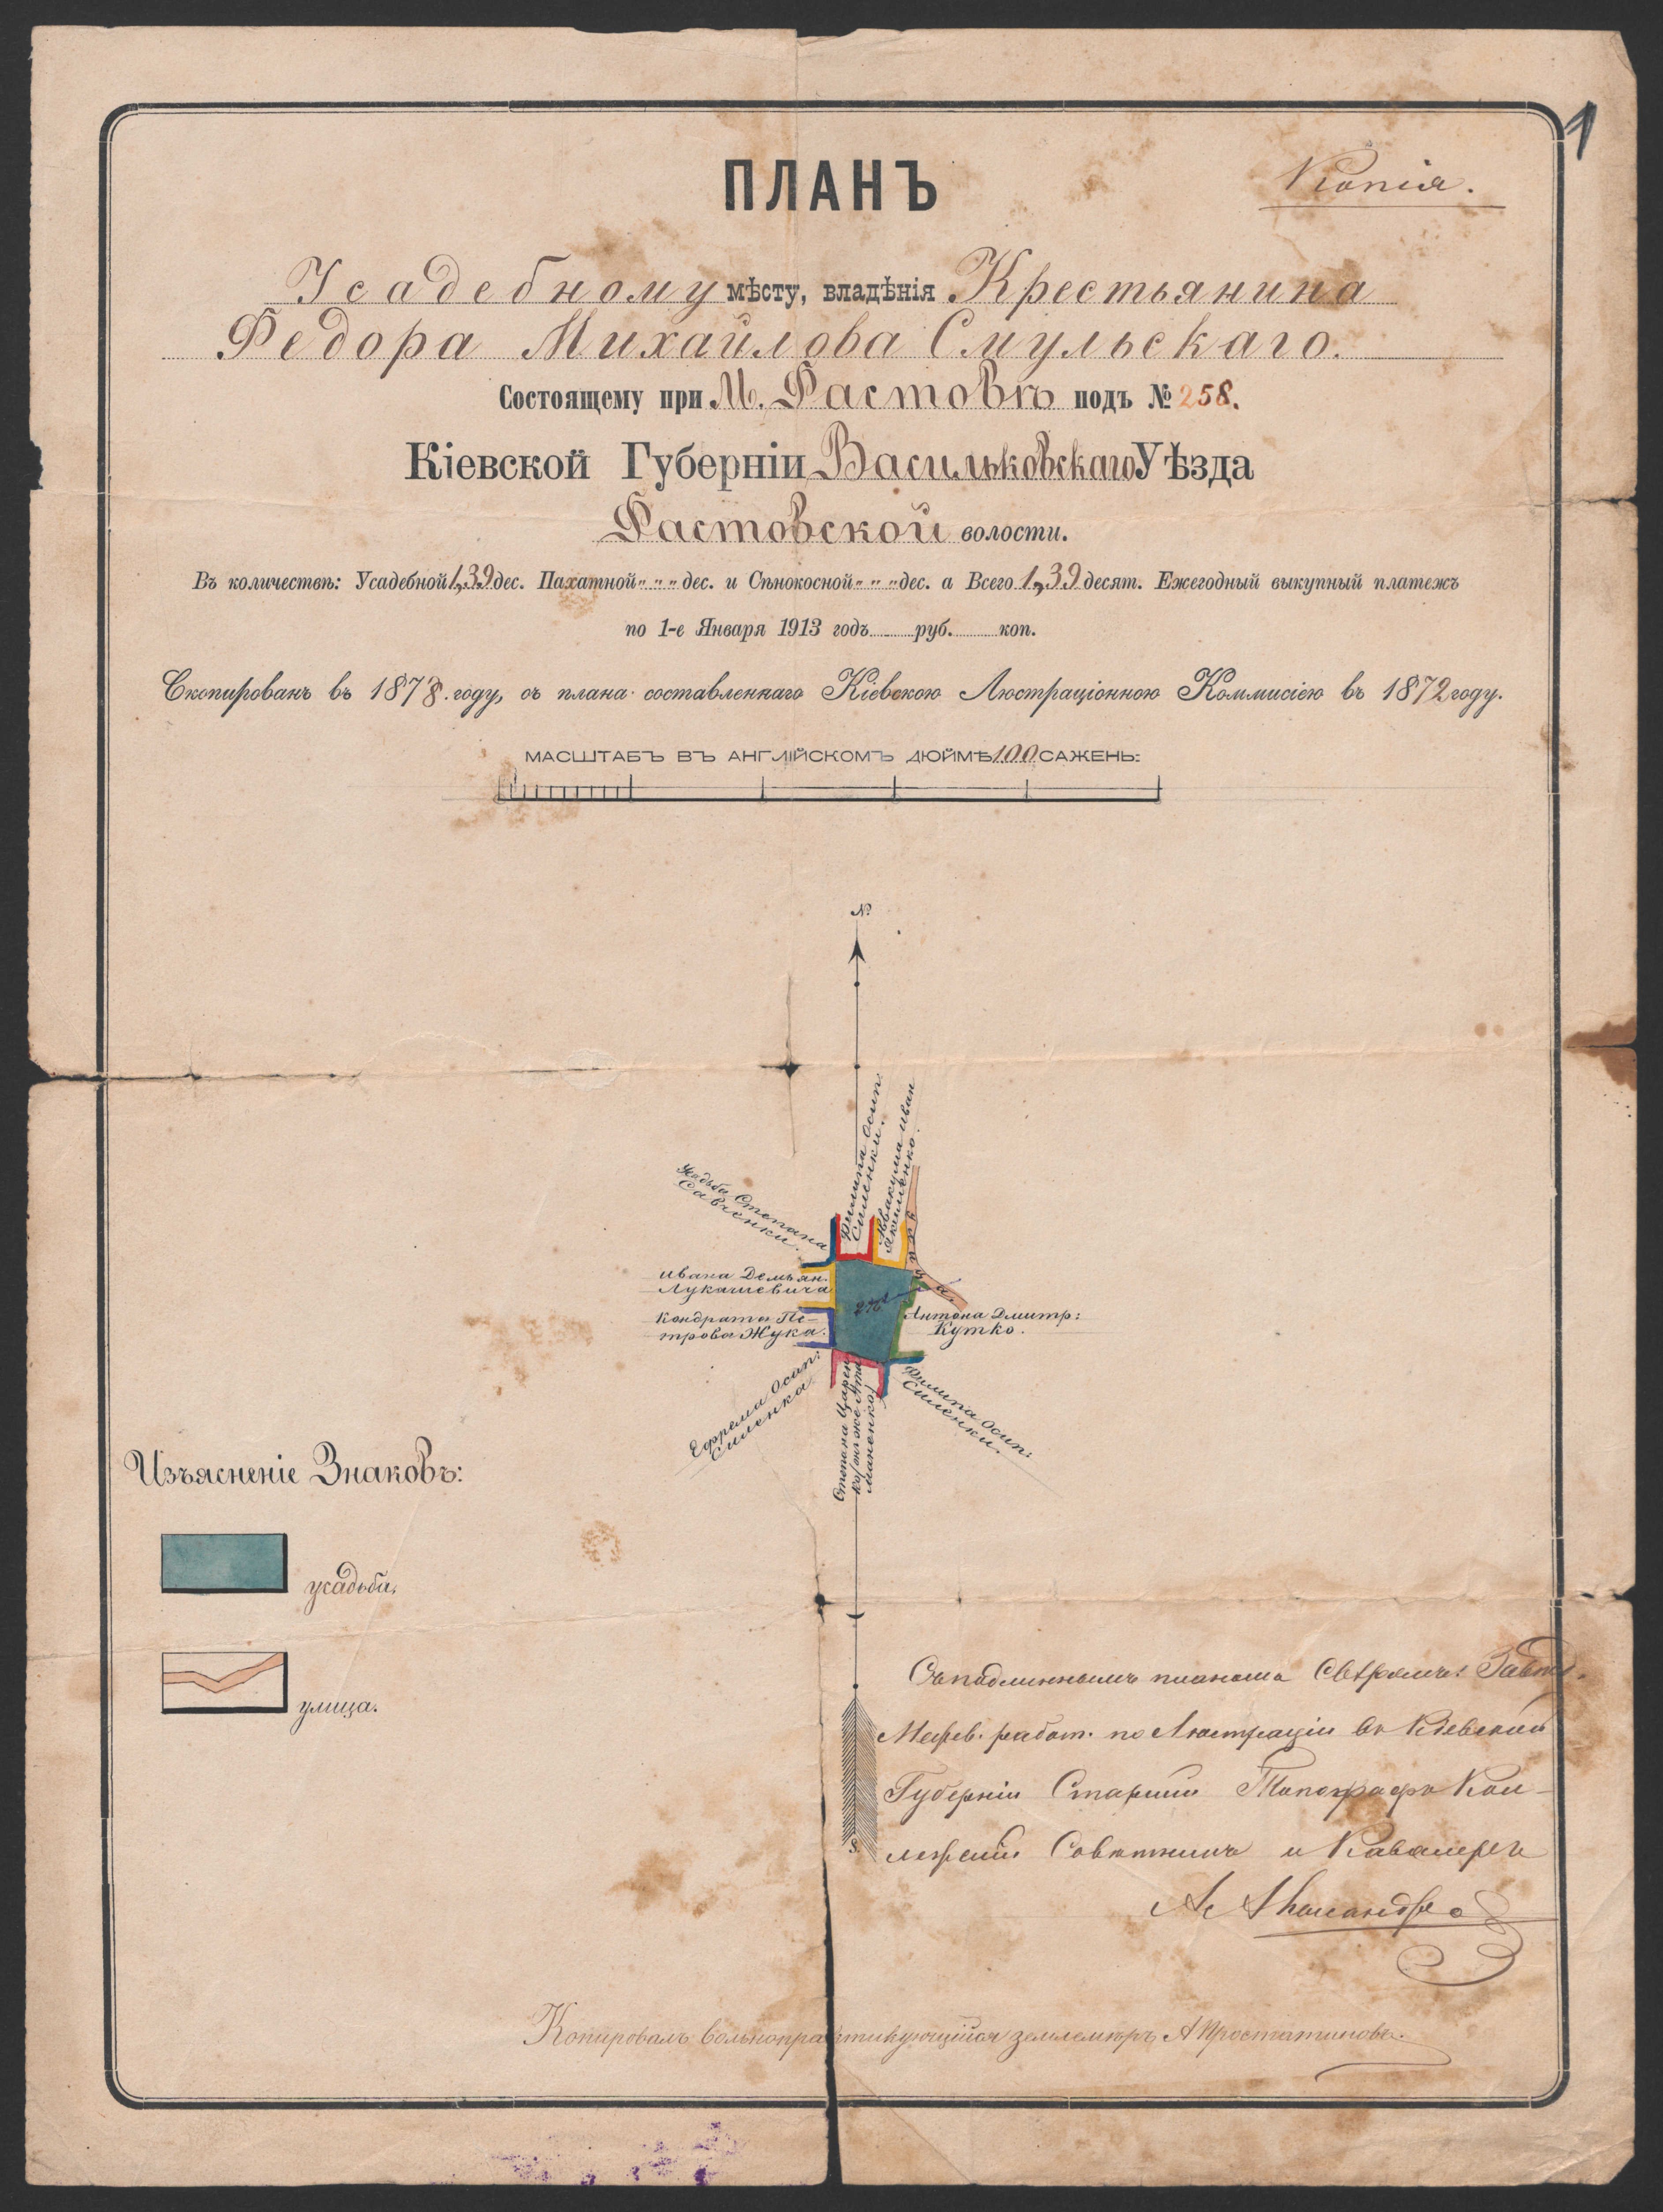 1
ПЛАНЪ
Копія.
Усадебному мѣсту, владѣнія Крестьянина
Федора Михайлова Смульскаго.
Состоящему при М. Фастовѣ подъ № 258.
Кіевской Губерніи Васильковскаго Уѣзда
Фастовской волости.
Въ количествѣ: Усадебной 1,39 дес. Пахатной " " " дес. и Сѣнокосной " " " дес. а Всего 1,39 десят. Ежегодный выкупный платежъ
по 1-е Января 1913 годъ руб. коп.
Скопированъ въ 1878 году, съ плана составленнаго Кіевскою Люстраціонною Коммисіею въ 1872 году.
МАСШТАБЪ ВЪ АНГЛІЙСКОМЪ ДЮЙМѢ 100 САЖЕНЬ:
N.
Филипа Осип:
Силенки.
Аввакума Иван
Якименко.
улица
Усадьба Степана
Савченки.
Ивана Демьян.
Лукашевича
Кондрата Пе-
трова Жука.
Антона Дмитр:
Кутко.
Ефрема Осип:
Силенка
Степана Царен
ко (онъ же Ата
маненко)
Филипа Осип:
Силенки.
Изъясненіе Знаковъ:
усадьба.
улица.
S.
Съ подлиннымъ планомъ свѣрялъ:
Межев. работ. по Люстраціи въ Кіевской
Губерніи Старшій Топографъ Кол-
лежскій Совѣтникъ и Кавалеръ
Копировалъ вольнопрактикующійся землемѣръ А